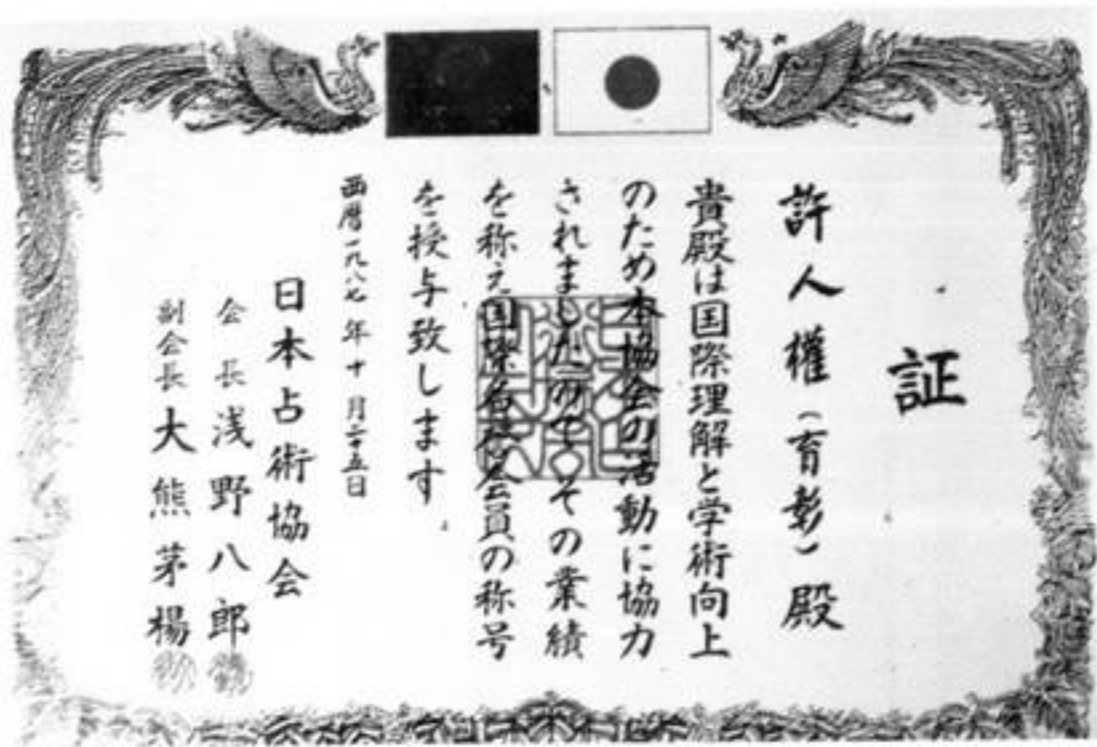 証
許人權(育彰)殿
貴殿は国際理解と学術向上
のため本協会の活動に協力
されましたのでその業績
を称え国際名誉会員の称号
を授与致します
西暦一九八七年十月二十五日
日本占術協会
会長浅野八郎
副会長大熊茅楊